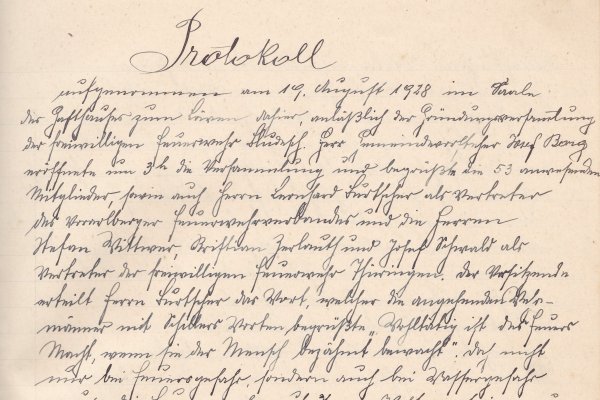 Protokoll
aufgenommen am 19. August 1928 im Saale
des Gasthauses zum Löwen dahier, anläßlich der Gründungsversamlung
der freiwilligen Feuerwehr Bludesch. Herr Gemeindevorsteher Josef Borg
eröffnete um 3h die Versammlung und begrüßte die 53 anwesenden
Mitglieder, sowie auch Herrn Leonhard Furtscher als Vertreter
des Vorarlberger Feuerwehrverbandes und die Herren
Stefan Wittwer, Kristian Zerlauth und Josef Schwald als
Vertreter der freiwilligen Feuerwehr Thüringen. Der Vorsitzende
erteilt Herrn Furtscher das Wort, welcher die angehenden Wehr-
männer mit Schillers Worten begrüßte „Wohltätig ist des Feuers
Macht, wenn sie der Mensch bezähmt bewacht". Daß nicht
nur bei Feuersgefahr, sondern auch bei Wassergefahr